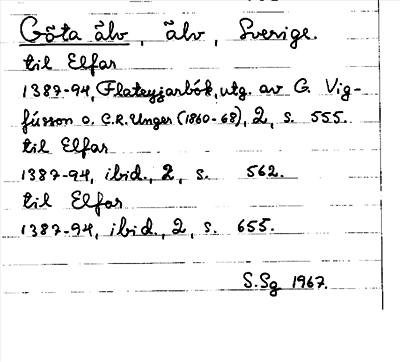 Göta älv, älv, Sverige.
til Elfar
1387-94, Flateyjarbók, utg. av G. Vig-
fússon o. C.R. Unger (1860-68), 2, s. 555.
til Elfar
1387-94, ibid., 2, s. 562.
til Elfar
1387-94, ibid., 2, s. 655.
S.Sg 1967.